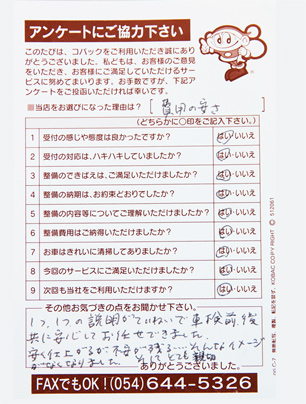 アンケートにご協力下さい
このたびは、コバックをご利用いただき誠にあり
がとうございました。私どもは、お客様のご意見
をいただき、お客様にご満足していただけるサー
ビスに努めてまいります。お手数ですが、下記ア
ンケートをご投函いただければ幸いです。
■当店をお選びになった理由は?
費用の安さ
(どちらかに○印をご記入下さい。)
1 受付の感じや態度は良かったですか? はい・いいえ
2 受付の対応は、ハキハキしていましたか? はい・いいえ
3 整備のできばえは、ご満足いただけましたか? はい・いいえ
4 整備の納期は、お約束どおりでしたか? はい・いいえ
5 整備の内容等についてご理解いただけましたか? はい・いいえ
6 整備費用はご納得いただけましたか? はい・いいえ
7 お車はきれいに清掃してありましたか? はい・いいえ
8 今回のサービスにご満足いただけましたか? はい・いいえ
9 次回も当社をご利用いただけますか? はい・いいえ
その他お気づきの点をお聞かせ下さい。
1つ、1つの説明がていねいで車検前後
共に安心してお任せできました。
安く仕上がるが不安が残る…そんなイメージ
がなくなりました。そしてとても親切
ありがとうございました。
FAXでもOK!(054)644-5326
KOBAC COPY RIGHT © 512061